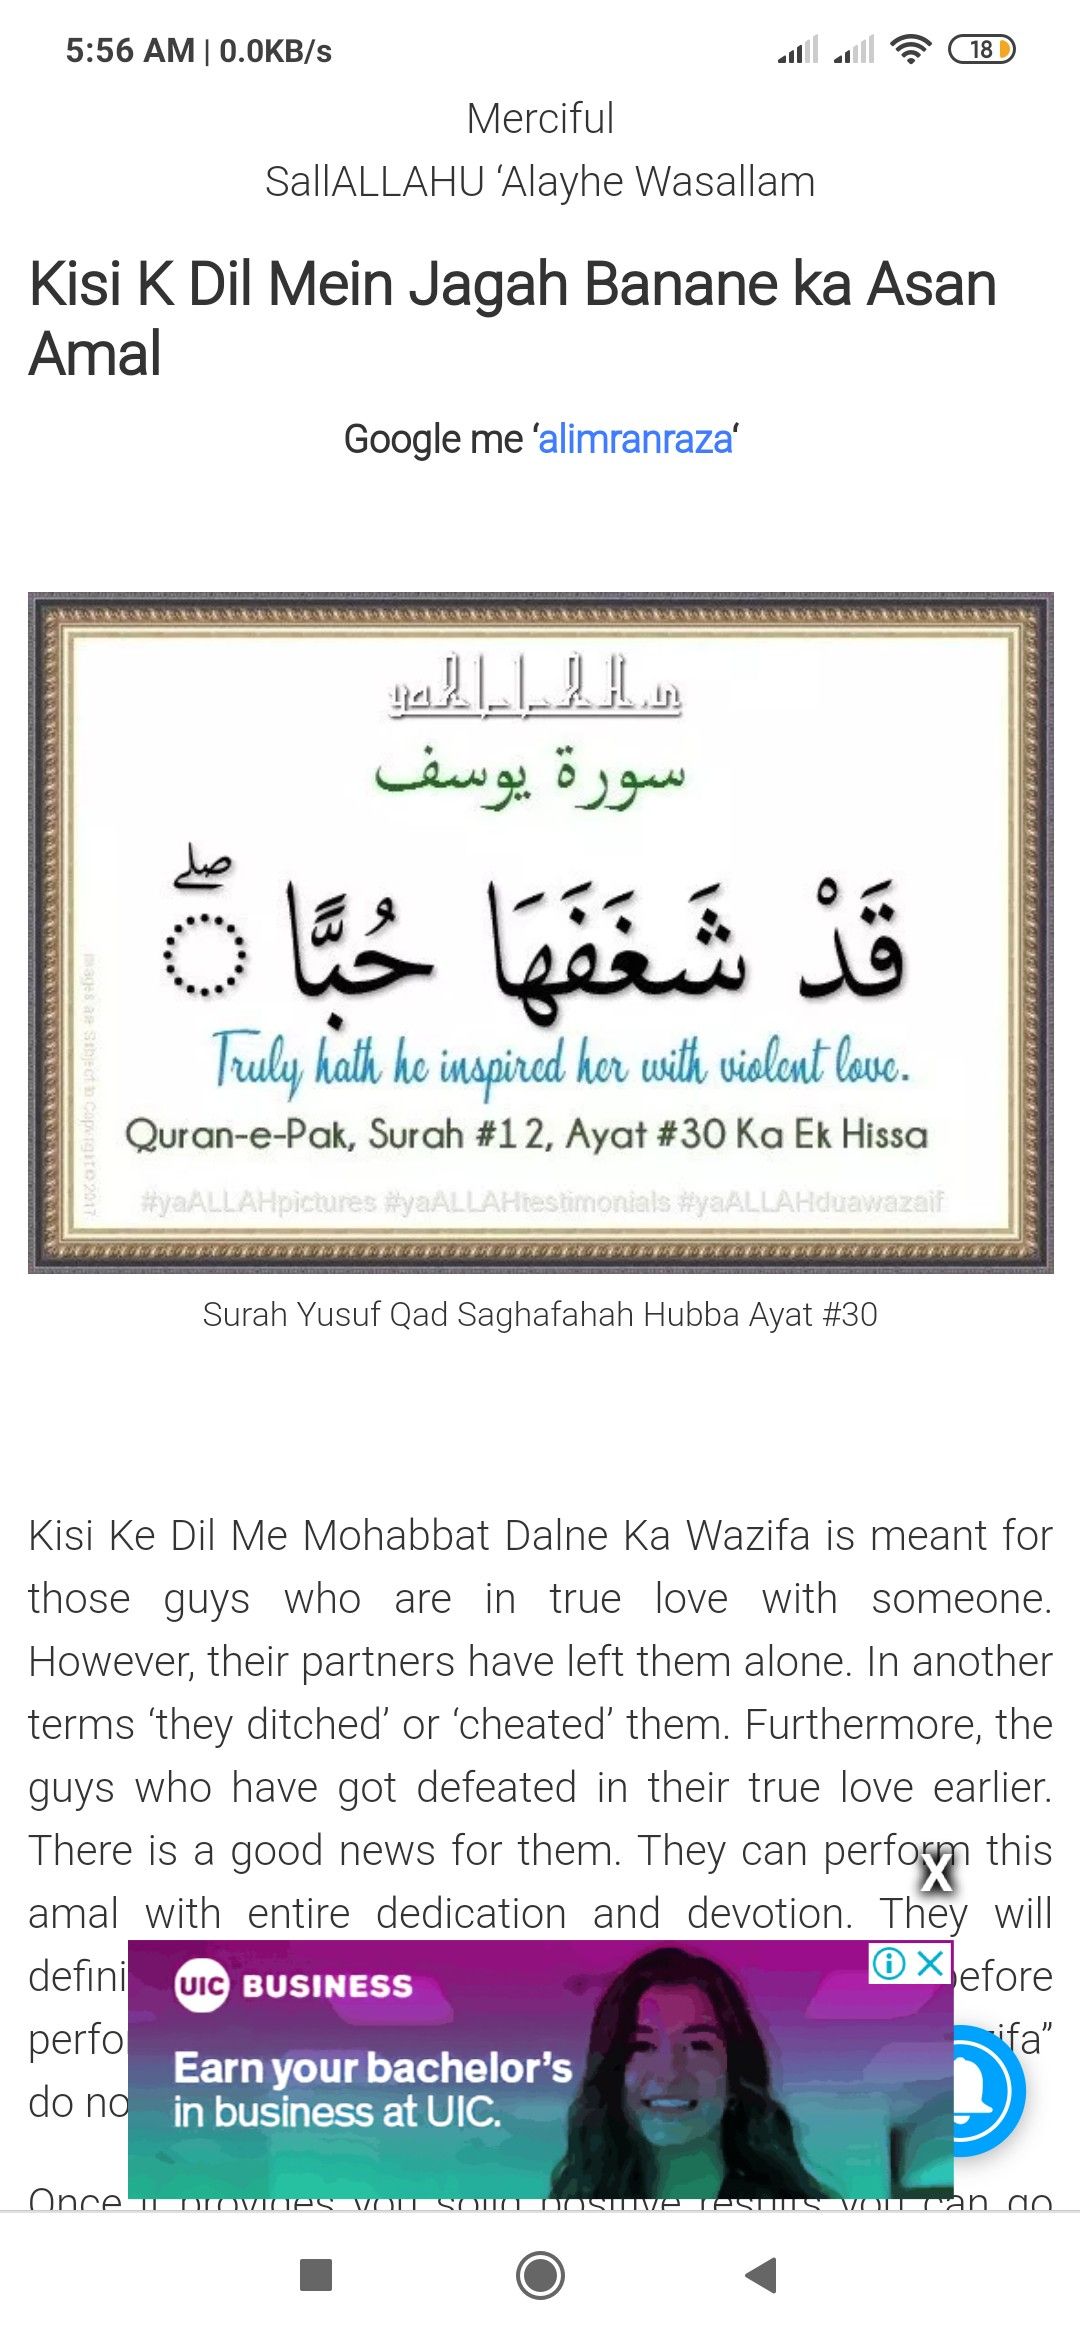 5:56 AM | 0.0KB/s
18
Merciful
SallALLAHU ‘Alayhe Wasallam
Kisi K Dil Mein Jagah Banane ka Asan
Amal
Google me ‘alimranraza‘
yaALLAH.in
سورة يوسف
قَدْ شَغَفَهَا حُبًّا ۖ
Truly hath he inspired her with violent love.
Quran-e-Pak, Surah #12, Ayat #30 Ka Ek Hissa
#yaALLAHpictures #yaALLAHtestimonials #yaALLAHduawazaif
Images are Subject to Copyright©2017
Surah Yusuf Qad Saghafahah Hubba Ayat #30
Kisi Ke Dil Me Mohabbat Dalne Ka Wazifa is meant for
those guys who are in true love with someone.
However, their partners have left them alone. In another
terms ‘they ditched’ or ‘cheated’ them. Furthermore, the
guys who have got defeated in their true love earlier.
There is a good news for them. They can perform this
X
amal with entire dedication and devotion. They will
defini
efore
perfo
ifa”
do no
UIC BUSINESS
Earn your bachelor’s
in business at UIC.
Once it provides you solid positive results you can go